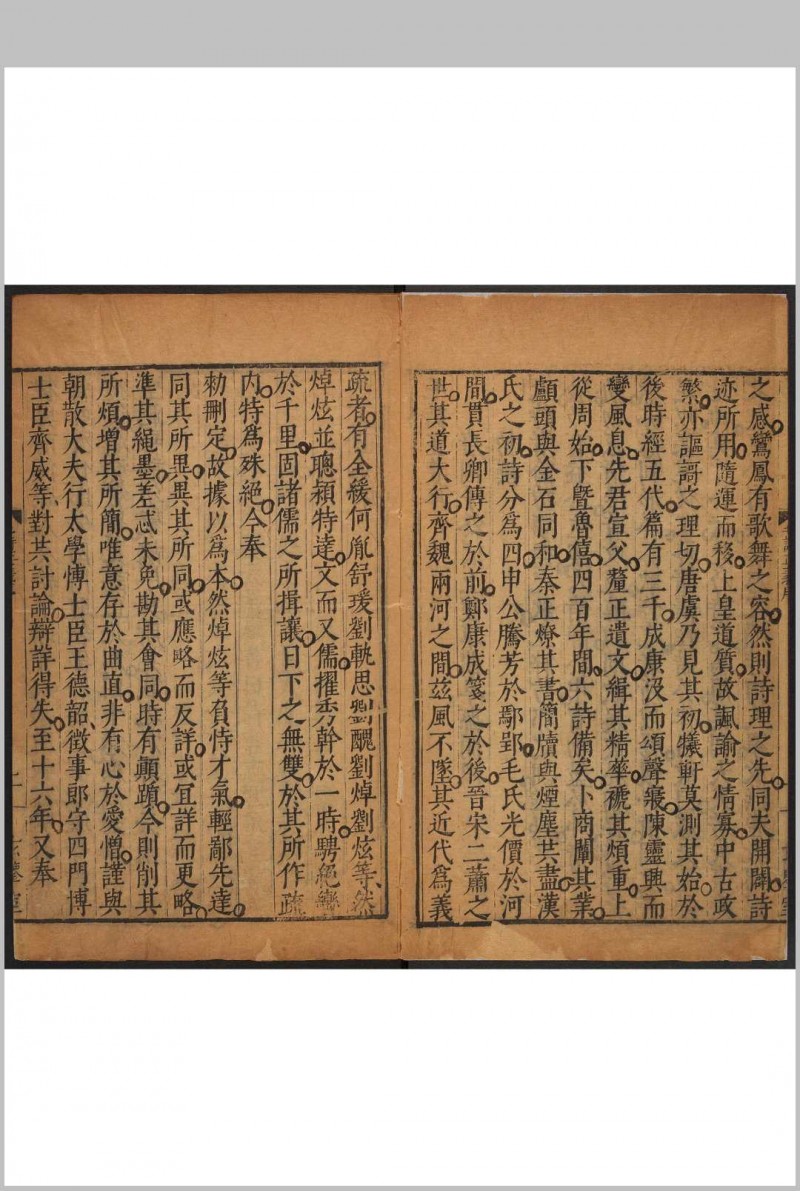 之感鸞鳳有歌舞之容然則詩理之先同夫開闢詩
迹所用隨運而移上皇道質故諷諭之情寡中古政
繁亦謳謌之理切唐虞乃見其初犧軒莫測其始於
後時經五代篇有三千成康沒而頌聲寢陳靈興而
變風息先君宣父釐正遺文緝其精華褫其煩重上
從周始下曁魯僖四百年間六詩備矣卜商闡其業
顱頭與金石同和秦正燎其書簡牘與煙塵共盡漢
氏之初詩分爲四申公騰芳於鄢郢毛氏光價於河
間貫長卿傳之於前鄭康成箋之於後晉宋二蕭之
世其道大行齊魏兩河之間兹風不墜其近代爲義
疏者有全緩何胤舒瑗劉軌思劉醜劉焯劉炫等然
焯炫並聰穎特達文而又儒擢秀幹於一時騁絕轡
於千里固諸儒之所揖讓日下之無雙於其所作疏
內特爲殊絕今奉
勑刪定故據以爲本然焯炫等負恃才氣輕鄙先達
同其所異異其所同或應略而反詳或宜詳而更略
準其繩墨差忒未免勘其會同時有顛躓今則削其
所煩增其所簡唯意存於曲直非有心於愛憎謹與
朝散大夫行太學博士臣王德韶徵事郎守四門博
士臣齊威等對共討論辯詳得失至十六年又奉